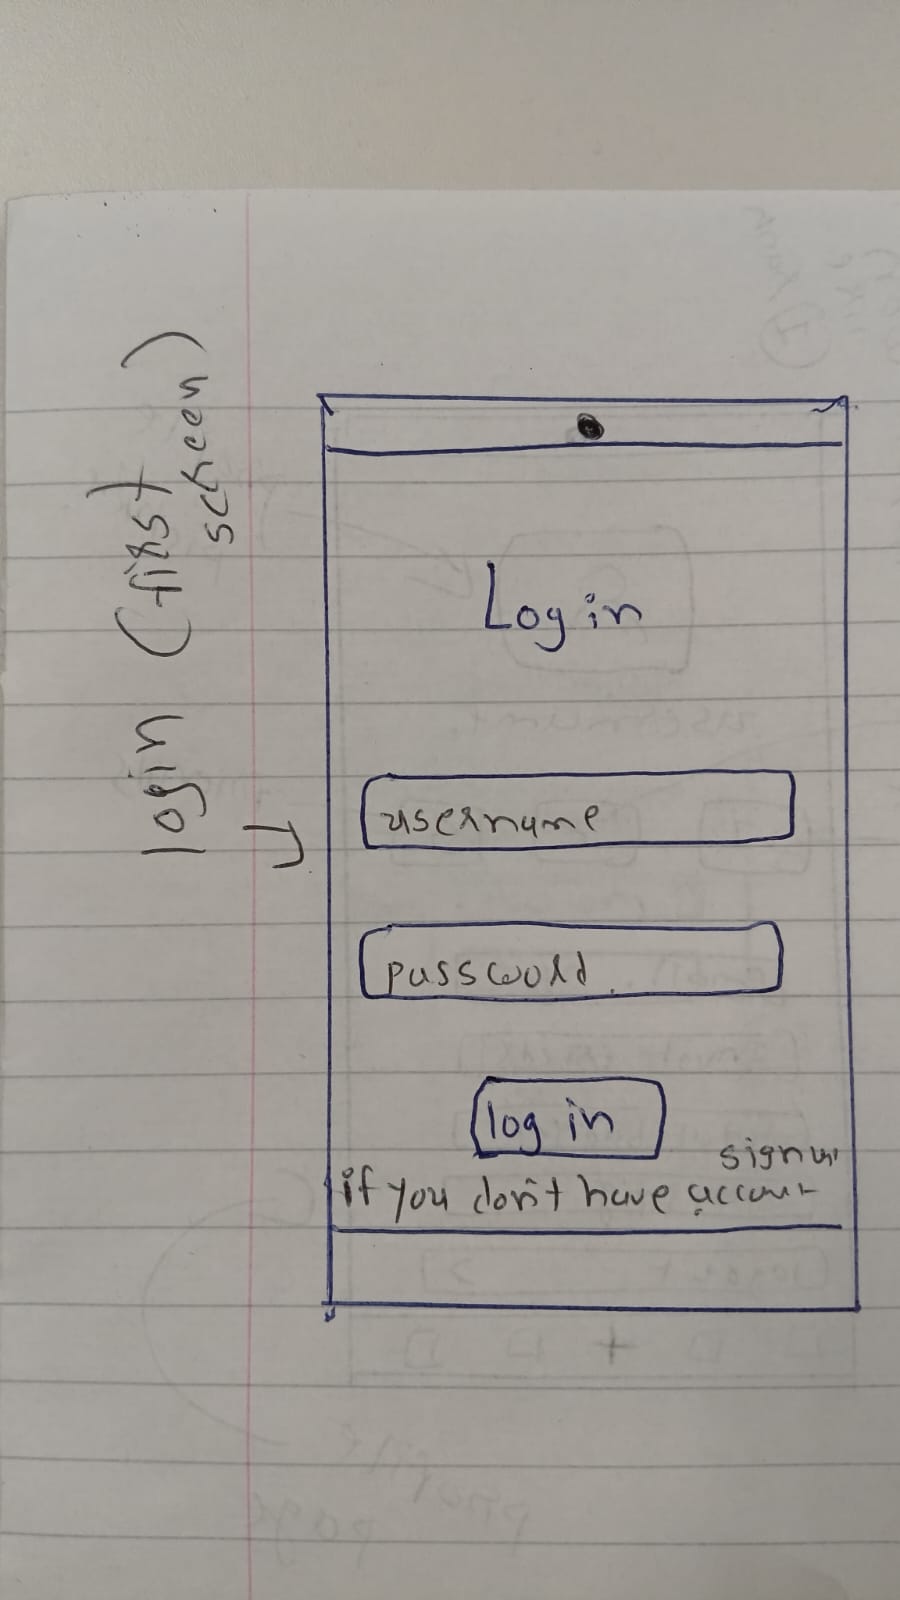 login (first
screen)
Log in
username
password
log in
signup
if you don't have account